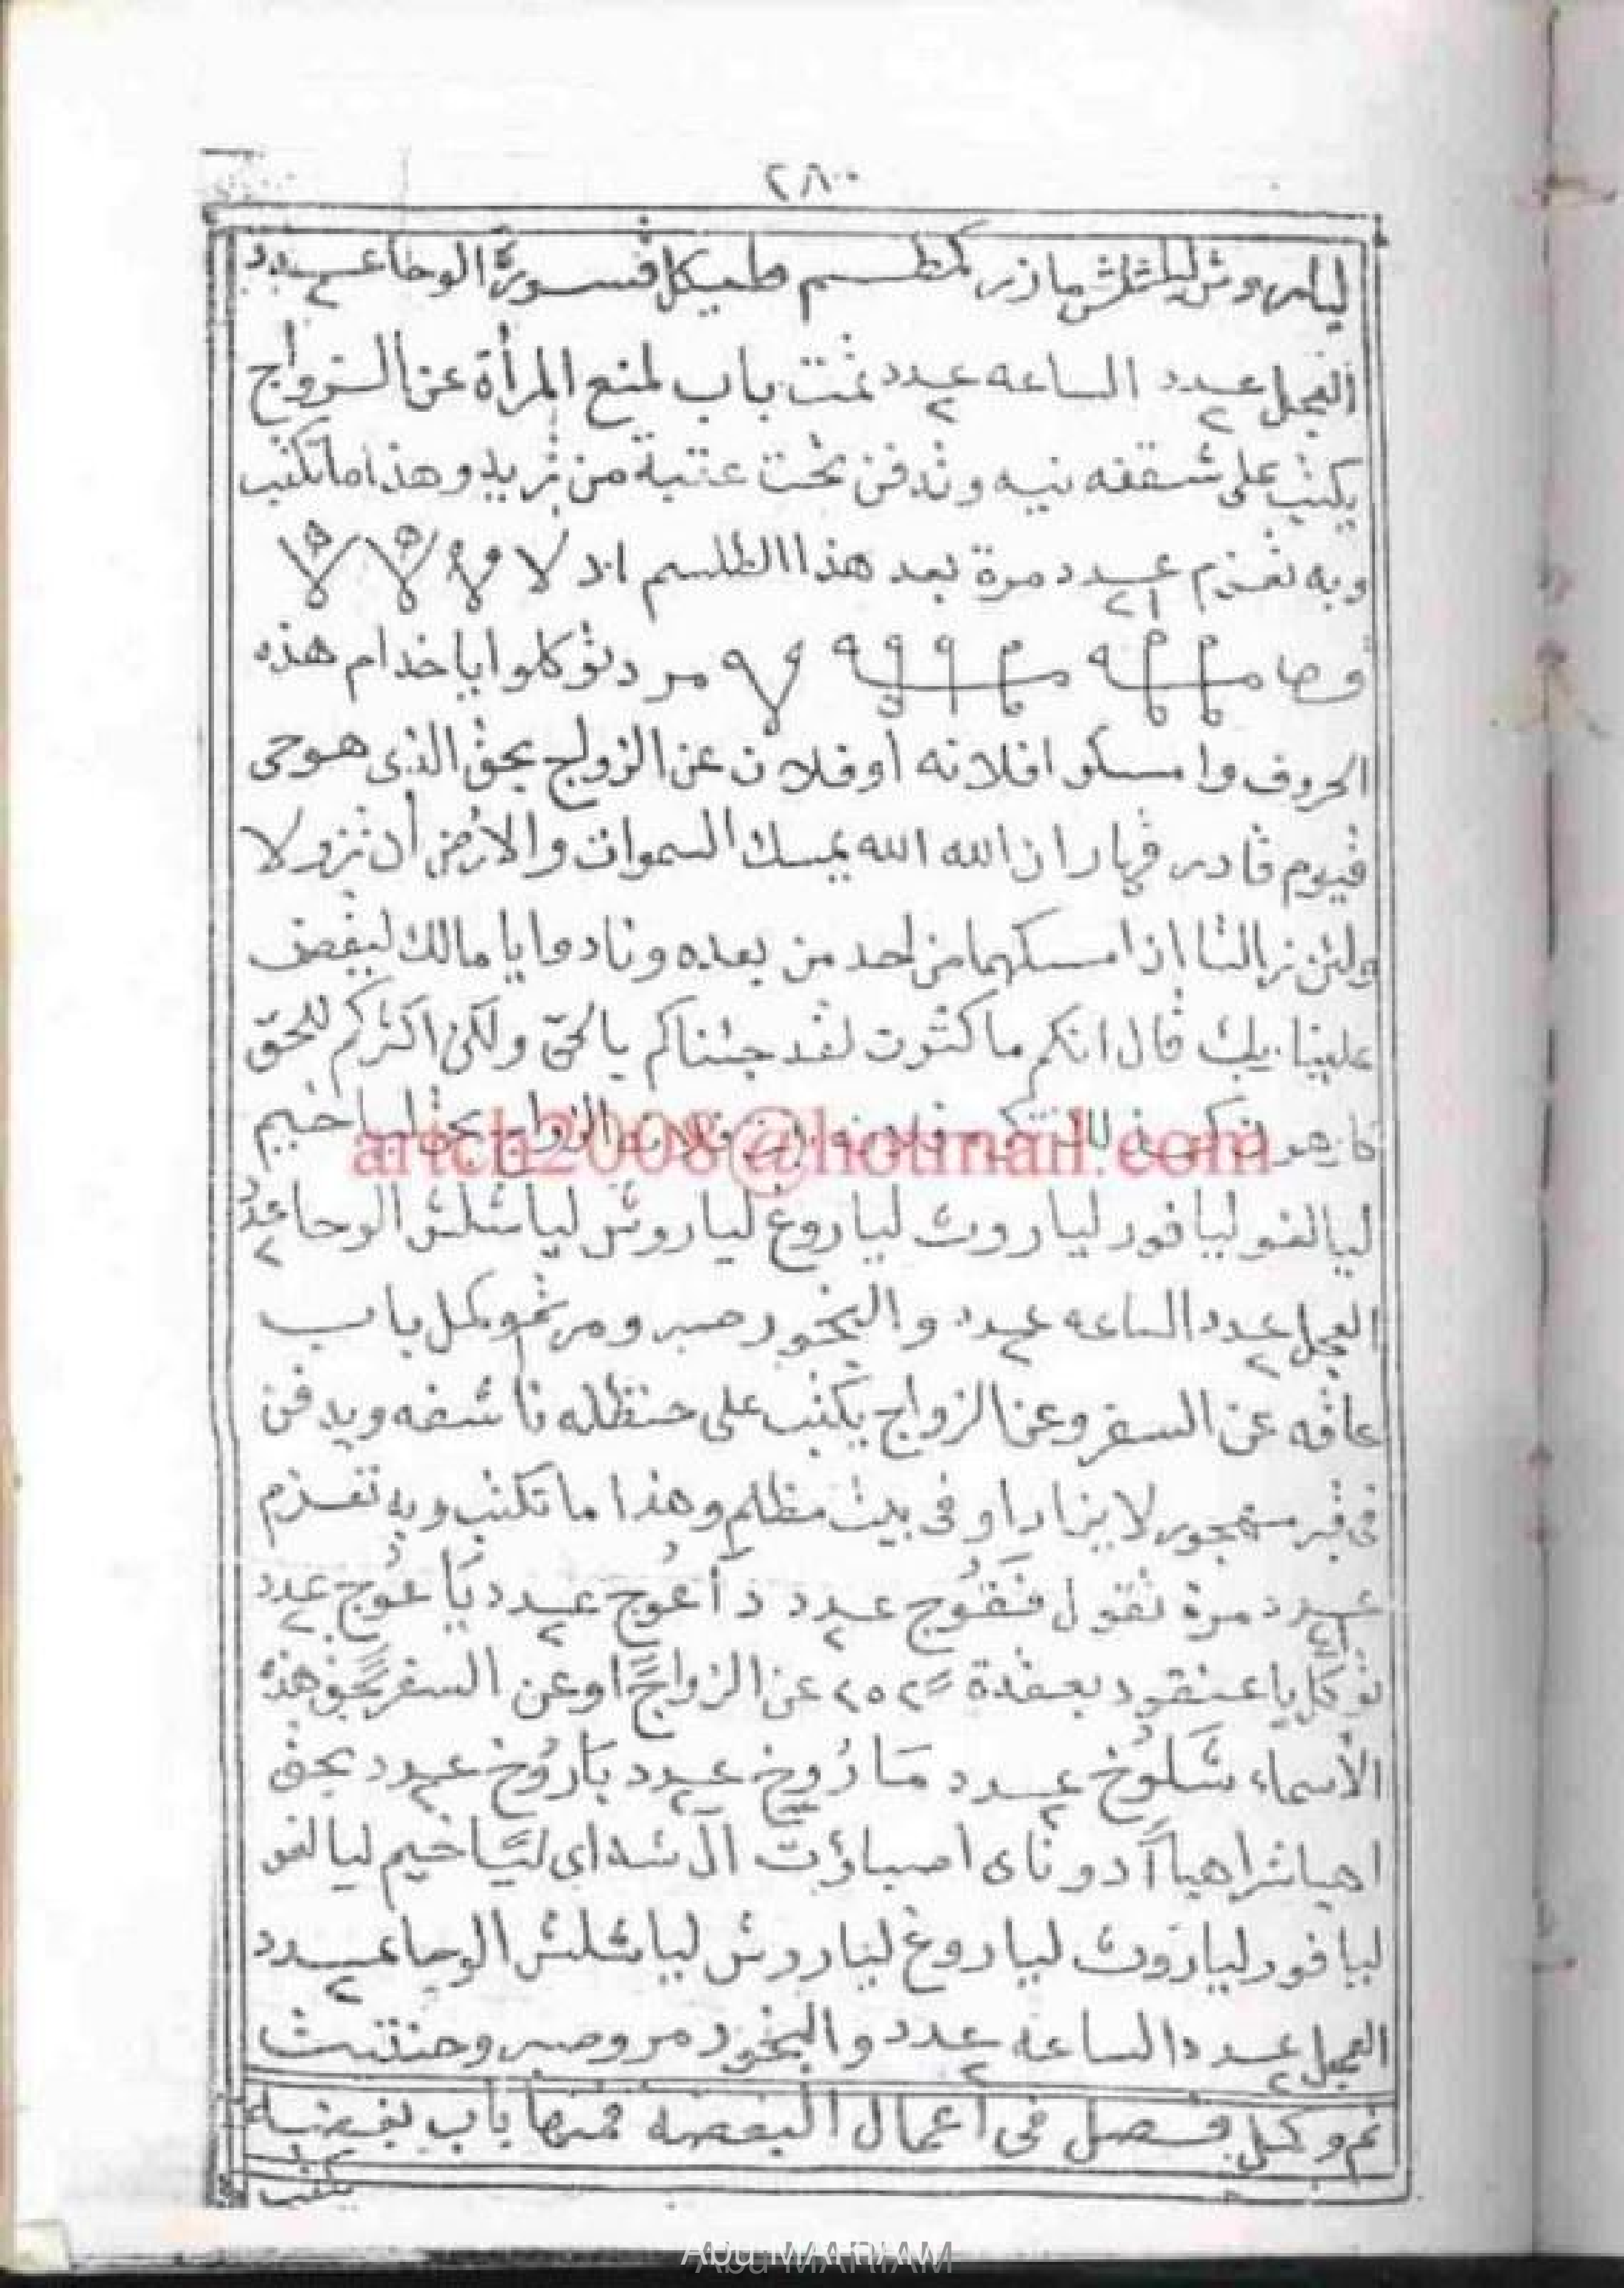 ٢٨٠
ليا روش ليا شلش كظم طيكل قسورة الوحا عدد
العجل عدد ٢ الساعه عدد ٢ تمت باب لمنع المرأة عن الزواج
يكتب على شقفه نيه وتدفن تحت عتبة من تريد وهذا ما تكتب
وبه تعزم عدد ٢١ مرة بعد هذا الطلسم
توكلوا يا خدام هذه
الحروف وامسكوا فلانه أو فلان عن الزواج بحق الذى هو حى
قيوم قادر قهار ان الله الله يمسك السموات والأرض أن تزولا
ولئن زالتا ان امسكهما من احد من بعده ونادوا يا مالك ليقض
علينا ربك قال انكم ماكثون لقد جئناكم بالحق ولكن اكثركم للحق
كارهون الزواج بحق لياخيم
ليالغو ليافور لياروث لياروغ لياروش لياشلش الوحا عدد ٢
العجل عدد ٢ الساعه عدد ٢ والبخور صبر ومر تم وكمل باب
عاقه عن السفر وعن الزواج يكتب على حنظله ناشفه ويدفن
فى قبر مهجور لا يزار او فى بيت مظلم وهذا ما تكتب وبه تعزم
عدد ٢١ مرة تقول فَقَوُج عدد ٢ ذَاعُوج عدد ٢ يَاعُوج عدد ٢
توكل يا عنقود بعقدة ٢٥٢ عن الزواج او عن السفر بحق هذه
الأسماء شَلوُخ عدد ٢ مَارُوخ عدد ٢ بَارُوخ عدد ٢ بحق
اهيا شراهيا أدوناى اصباؤت آل شداى لياخيم ليالغو
ليافور لياروث لياروغ لياروش لياشلش الوحا عدد ٢
العجل عدد ٢ الساعه عدد ٢ والبخور مر وصبر وحنتيت
تم وكمل فصل فى اعمال البغضه فمنها باب بغضه
يكتب
aritch2008@hotmail.com
Abu MARIAM